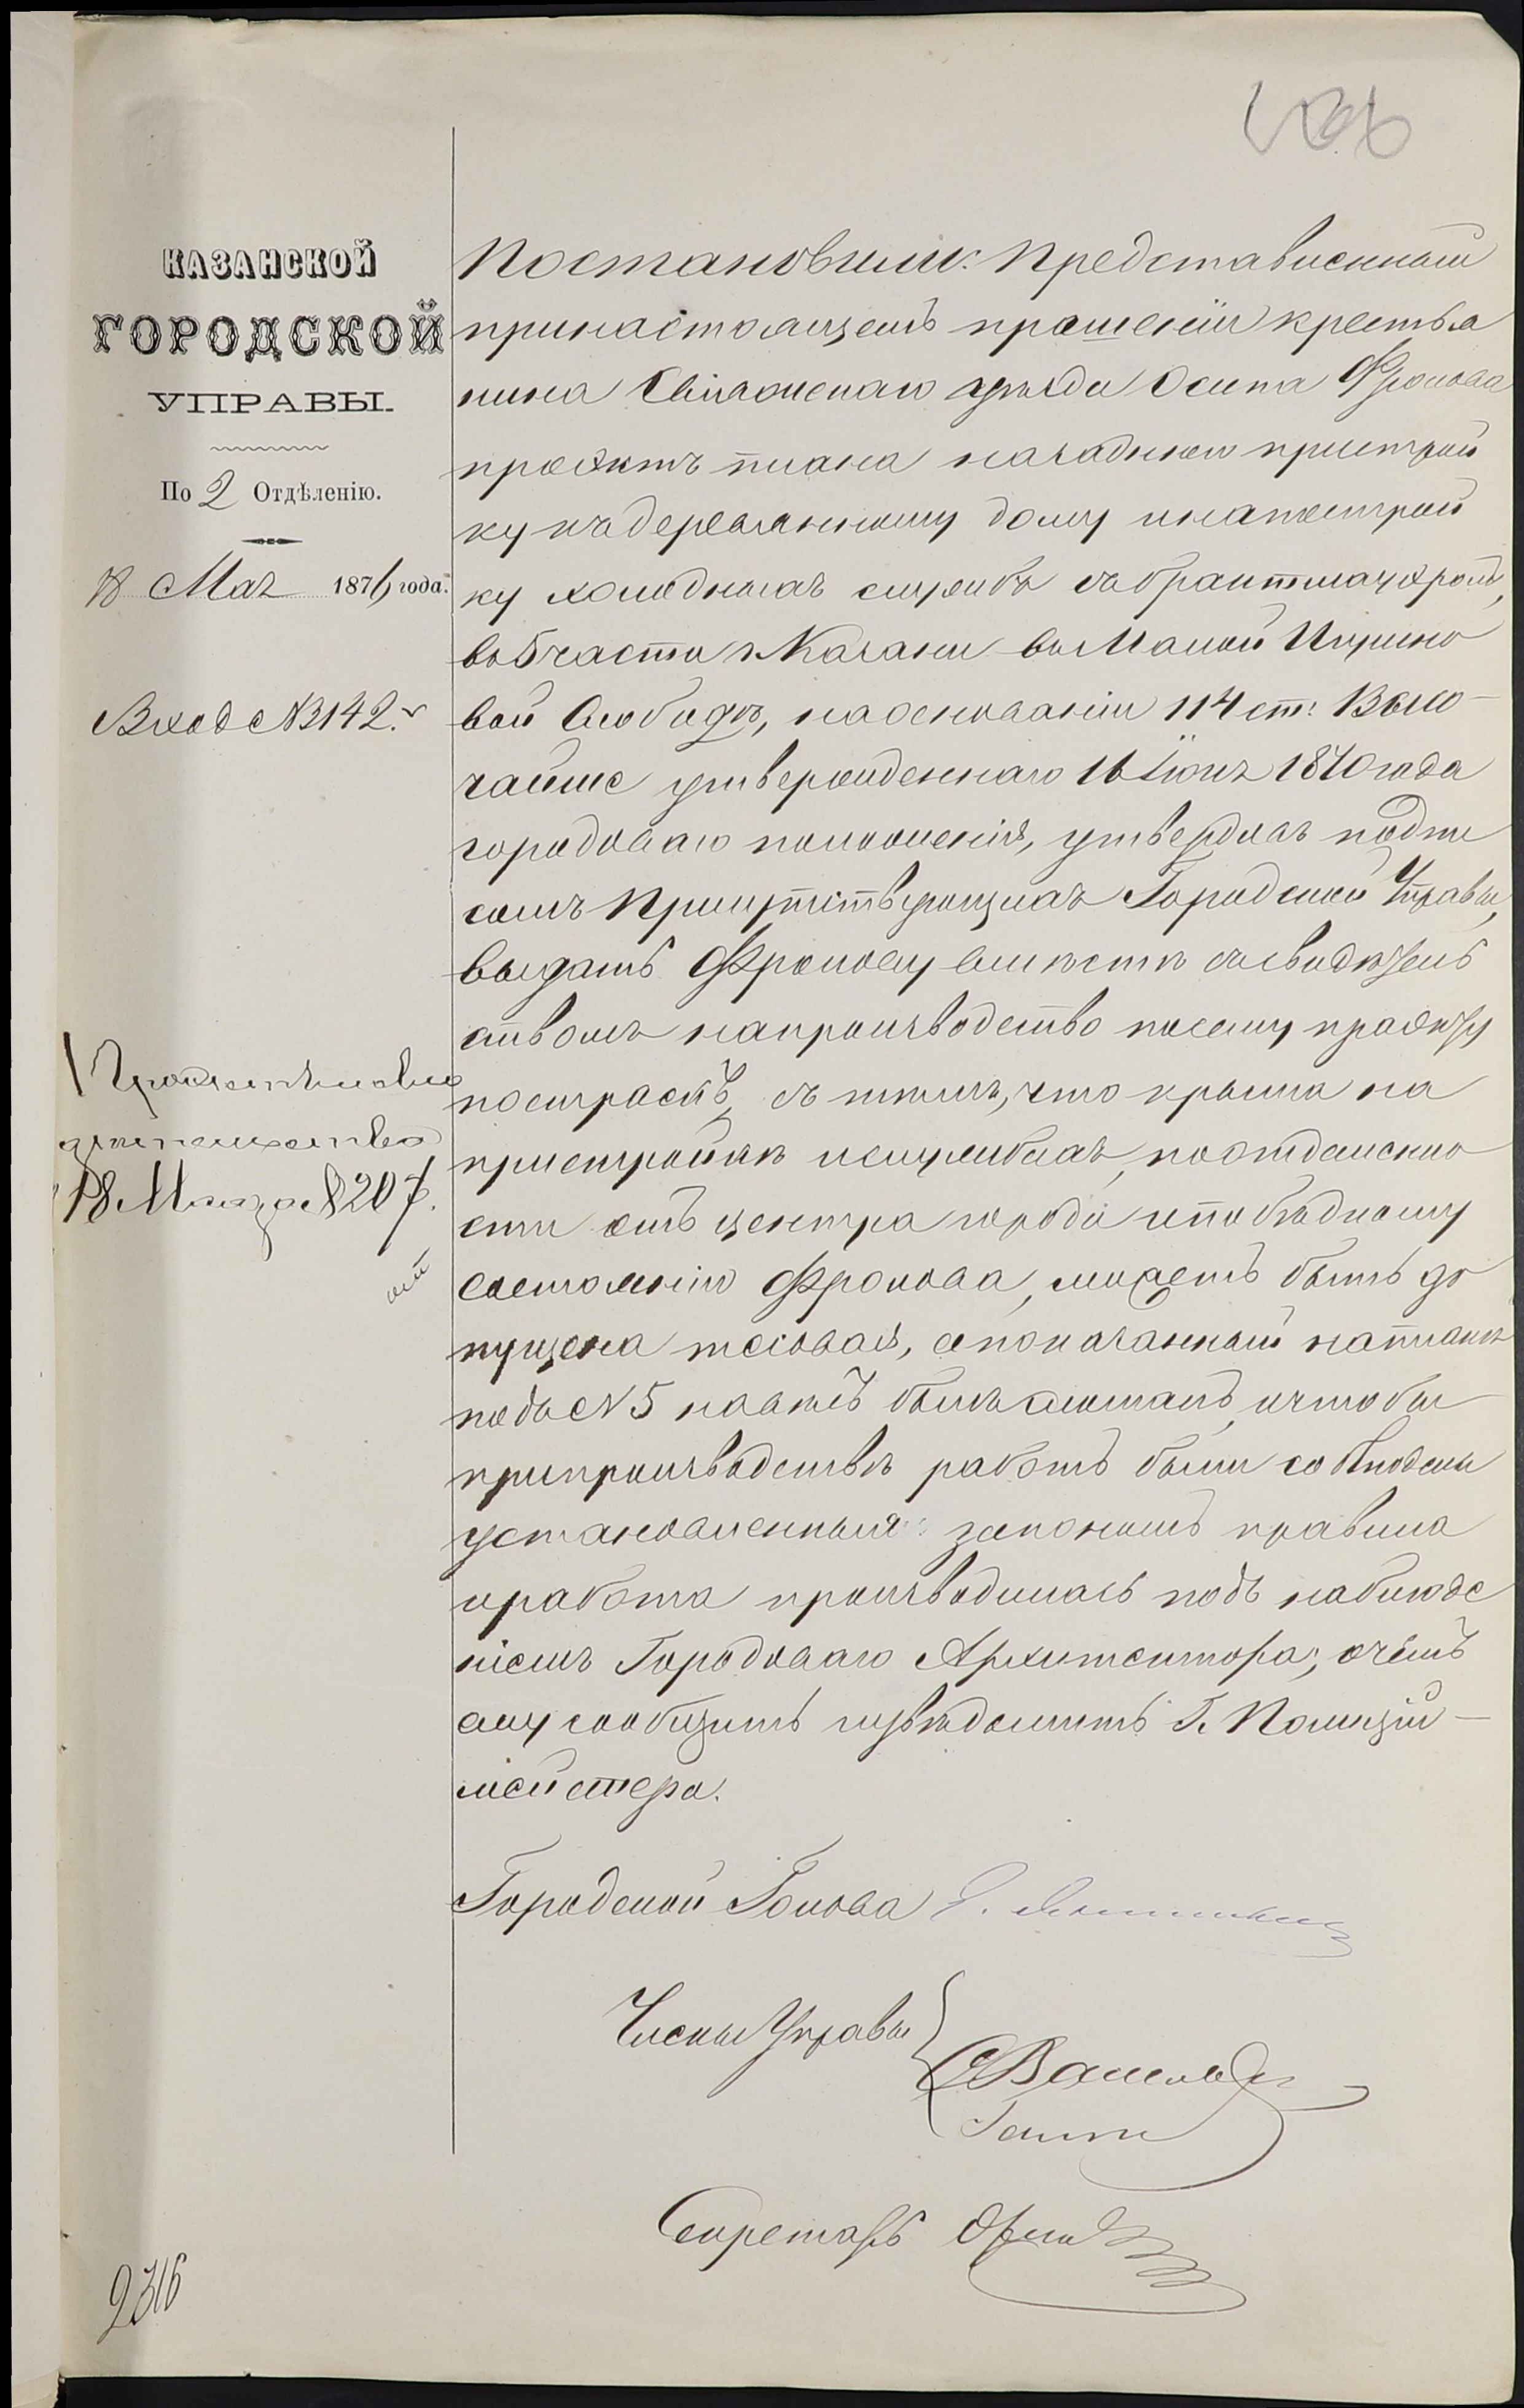 КАЗАНСКОЙ
ГОРОДСКОЙ
УПРАВЫ.
По 2 Отдѣленію.
18 Мая 1876 года.
Вход №3142.
18 Мая за №207.
Постановили: Представленный
принастоящемъ прошеніи крестья
нина Свіяжскаго уѣзда Осипа Фролова
проэктъ плана назаднюю пристрой
ку къдеревянному дому инапострой
ку холодныхъ службъ събрантмауэромъ,
въ5части г. Казани въ Малой Игумно
вой Слободѣ, наоснованіи 114 ст: Высо-
чайше утвержденнаго 16 Іюня 1870 года
городоваго положенія, утвердивъ подпи
сомъ Присутствующихъ Городской Управы,
выдать Фролову вмѣстѣ съсвидѣтель
ствомъ напроизводство посему проэкту
построекъ, съ тѣмъ, что крыша на
пристройкѣ ислужбахъ, поотдаленно
сти отъ центра города ипо бѣдному
состоянію Фролова, можетъ быть до
пущена тесовая, апоказанный напланѣ
подъ №5 навѣсъ былъ сломанъ, ичтобы
припроизводствѣ работъ были соблюдены
установленныя закономъ правила
иработа производилась подъ наблюде
ніемъ Городоваго Архитектора, очемъ
ему сообщить иувѣдомить Г. Полиций-
мейстера.
Городской Голова
Члены Управы
Секретарь
2316